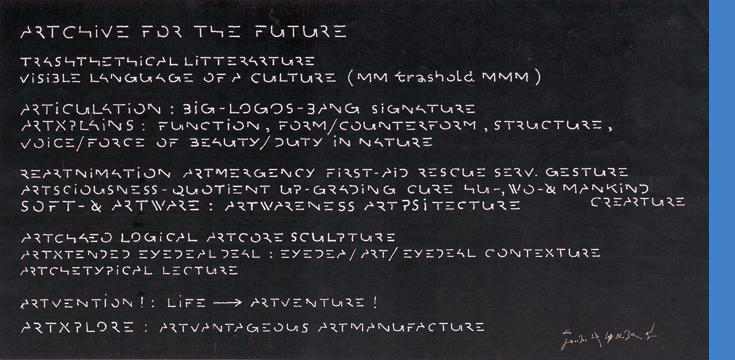 ARTCHIVE FOR THE FUTURE
TRASHTHETHICAL LITTERARTURE
VISIBLE LANGUAGE OF A CULTURE (MM trashold MMM)
ARTICULATION : BIG-LOGOS-BANG SIGNATURE
ARTXPLAINS : FUNCTION, FORM/COUNTERFORM, STRUCTURE,
VOICE/FORCE OF BEAUTY/DUTY IN NATURE
REARTNIMATION ARTMERGENCY FIRST-AID RESCUE SERV. GESTURE
ARTSCIOUSNESS-QUOTIENT UP-GRADING CURE HU-, WO-& MANKIND
SOFT-& ARTWARE : ARTWARENESS ARTPSITECTURE CREARTURE
ARTCHAEO LOGICAL ARTCORE SCULPTURE
ARTXTENDED EYEDEALDEAL : EYEDEA/ART/EYEDEAL CONTEXTURE
ARTCHETYPICAL LECTURE
ARTVENTION! : LIFE → ARTVENTURE!
ARTXPLORE : ARTVANTAGEOUS ARTMANUFACTURE